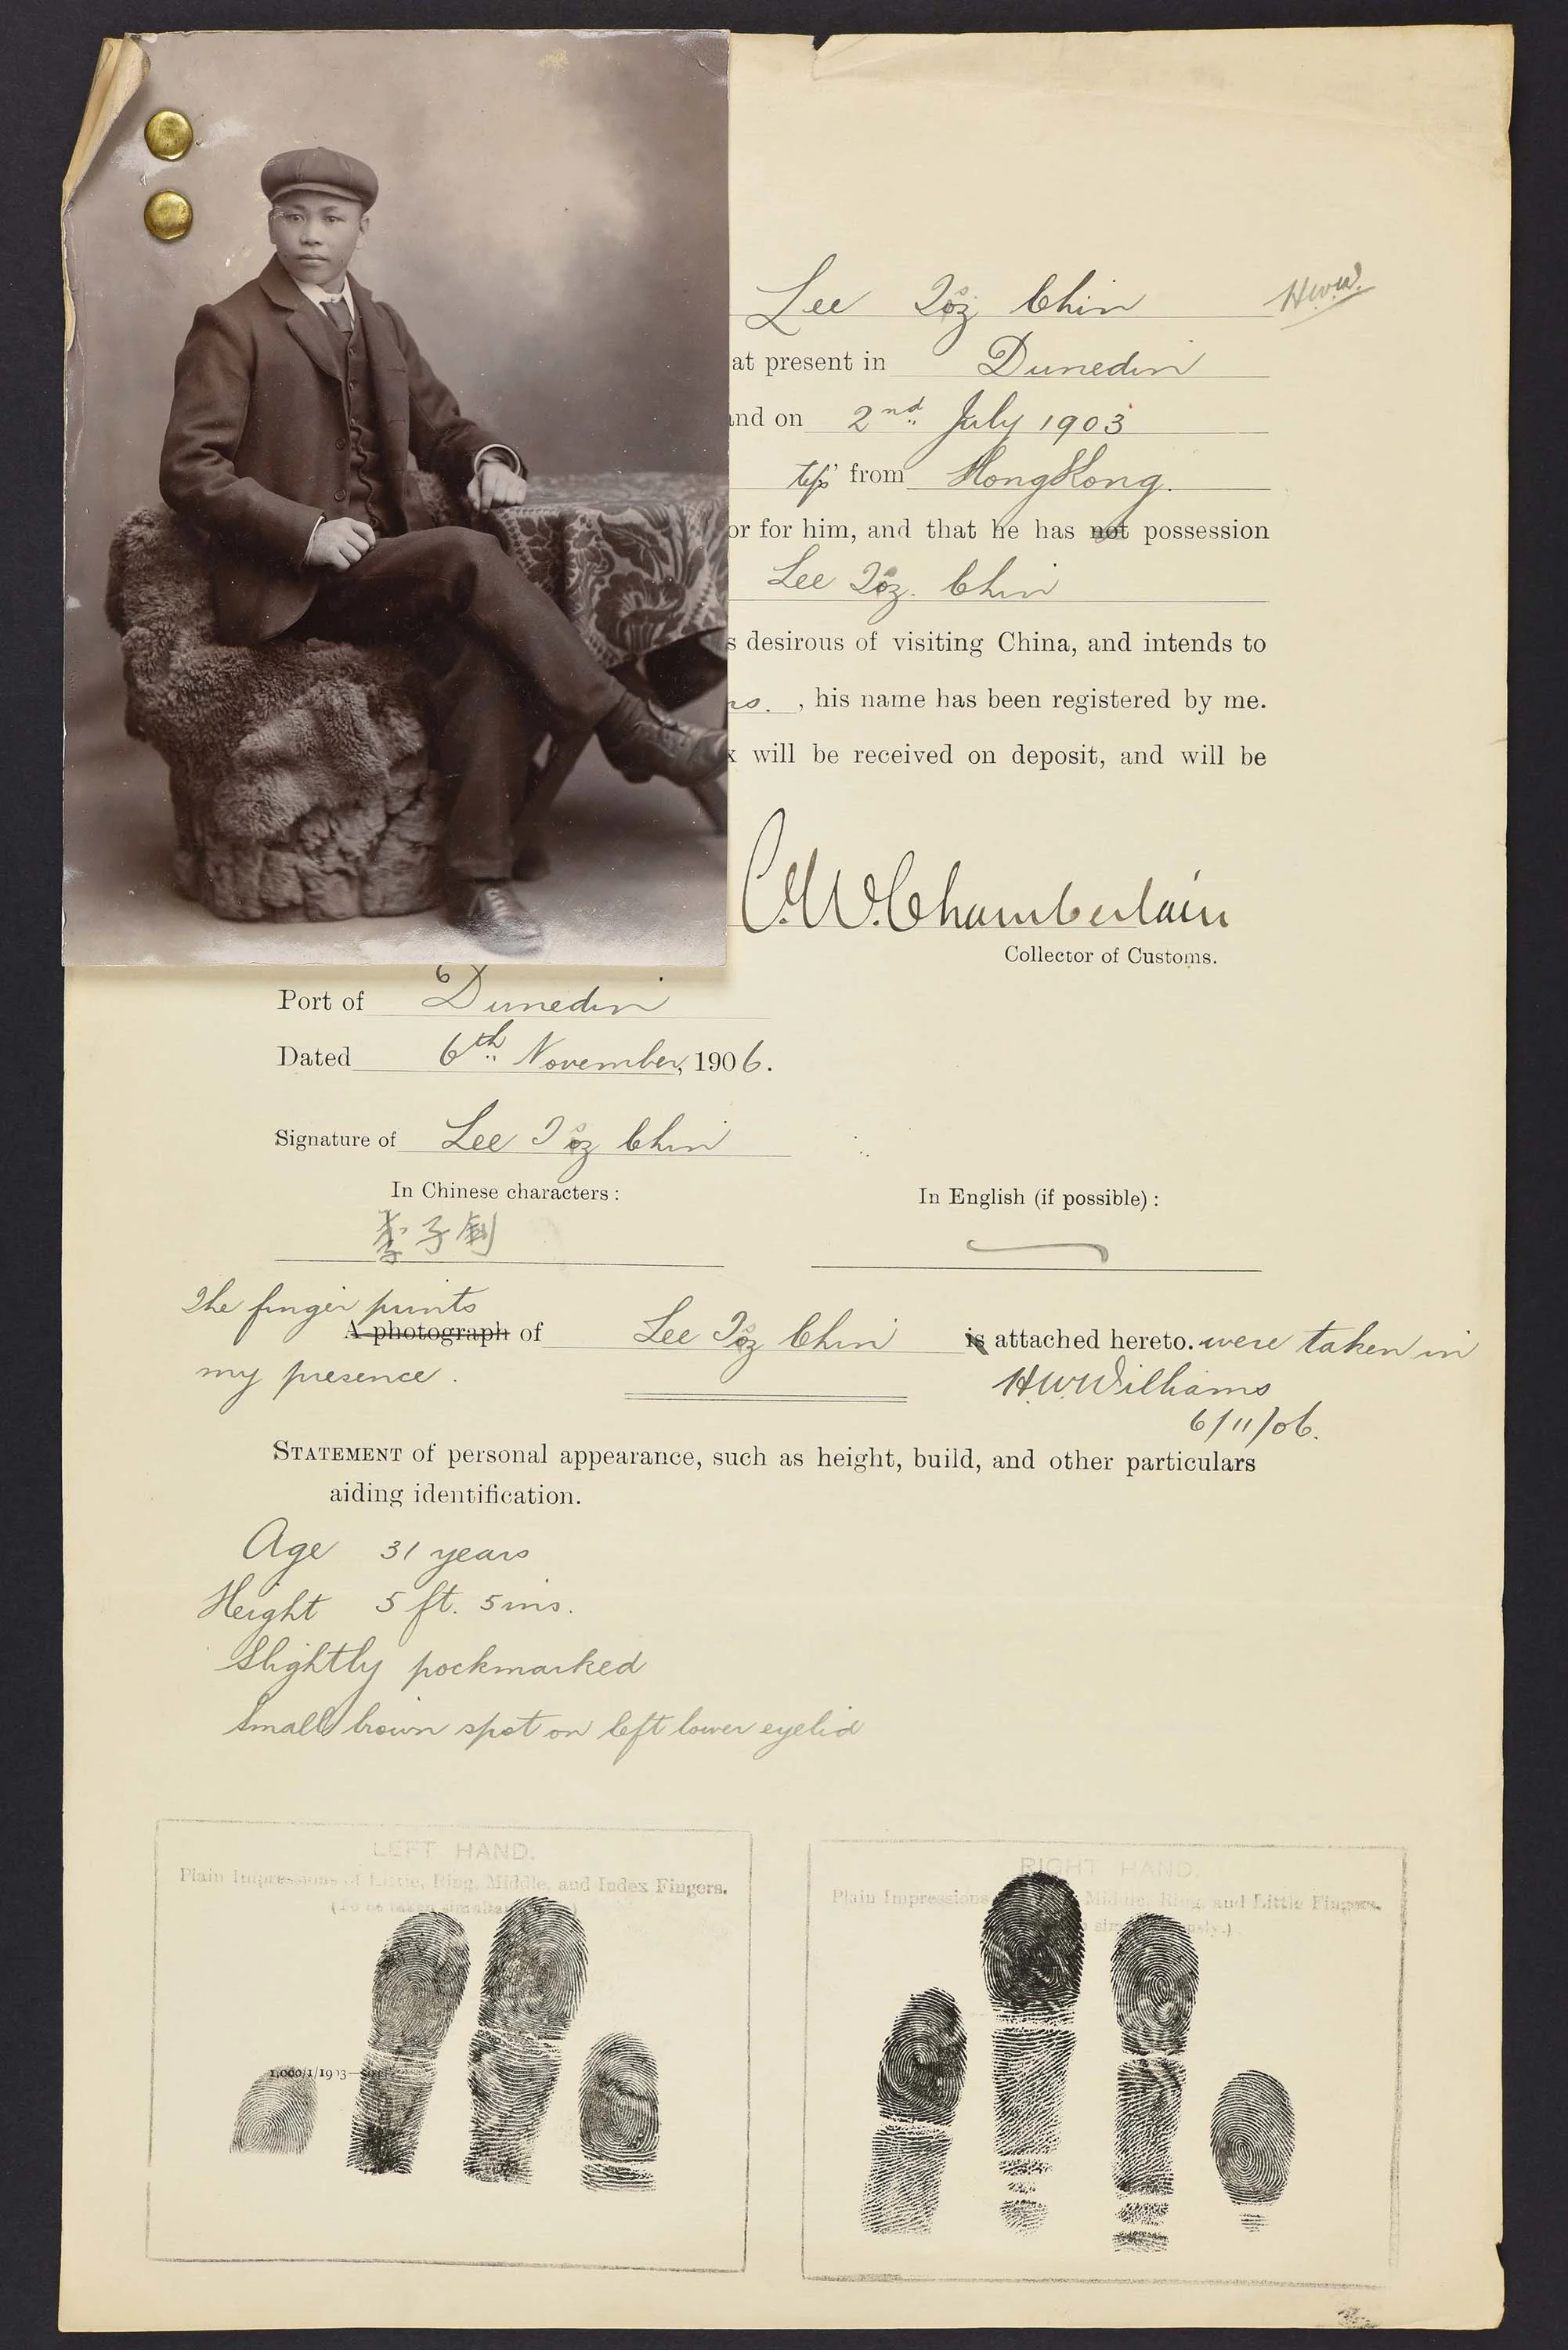 Lee Toz Chin H.W.W.
at present in Dunedin
and on 2nd July 1903
from Hong Kong.
or for him, and that he has not possession
Lee Toz. Chin
s desirous of visiting China, and intends to
rs. , his name has been registered by me.
x will be received on deposit, and will be
C.W.Chamberlain
Collector of Customs.
Port of Dunedin
Dated 6th November, 1906.
Signature of Lee Toz Chin
In Chinese characters: In English (if possible):
李子釗
The finger prints
A photograph of Lee Toz Chin is attached hereto. were taken in
my presence. H.W.Williams
6/11/06.
STATEMENT of personal appearance, such as height, build, and other particulars
aiding identification.
Age 31 years
Height 5 ft. 5 ins.
Slightly pockmarked
Small brown spot on left lower eyelid
LEFT HAND.
Plain Impressions of Little, Ring, Middle, and Index Fingers.
(To be taken
RIGHT HAND.
Plain Impressions Middle, Ring, and Little Fingers.
1,000/1/1903—